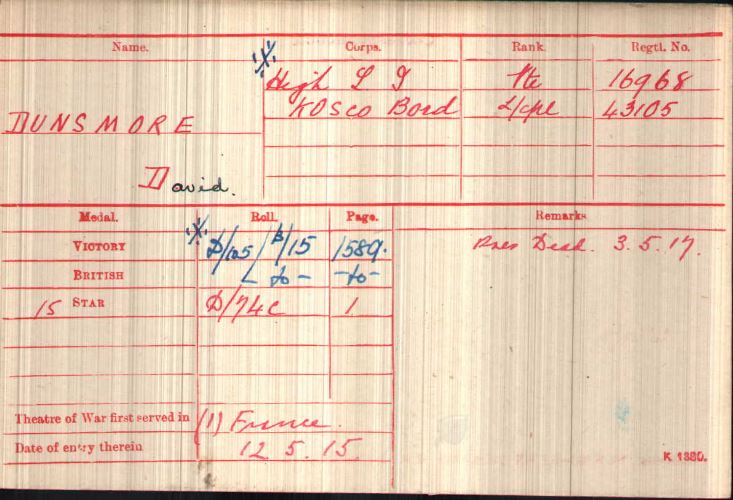 Name. Corps. Rank. Regtl. No.
High L I Pte 16968
DUNSMORE K O Sco Bord L/cpl 43105
David.
Medal. Roll. Page. Remarks
VICTORY D/105/B/15 1589. Pres Dead. 3.5.17
BRITISH - do - - do -
15 STAR D/74C 1
Theatre of War first served in (1) France.
Date of entry therein 12.5.15.
K 1380.